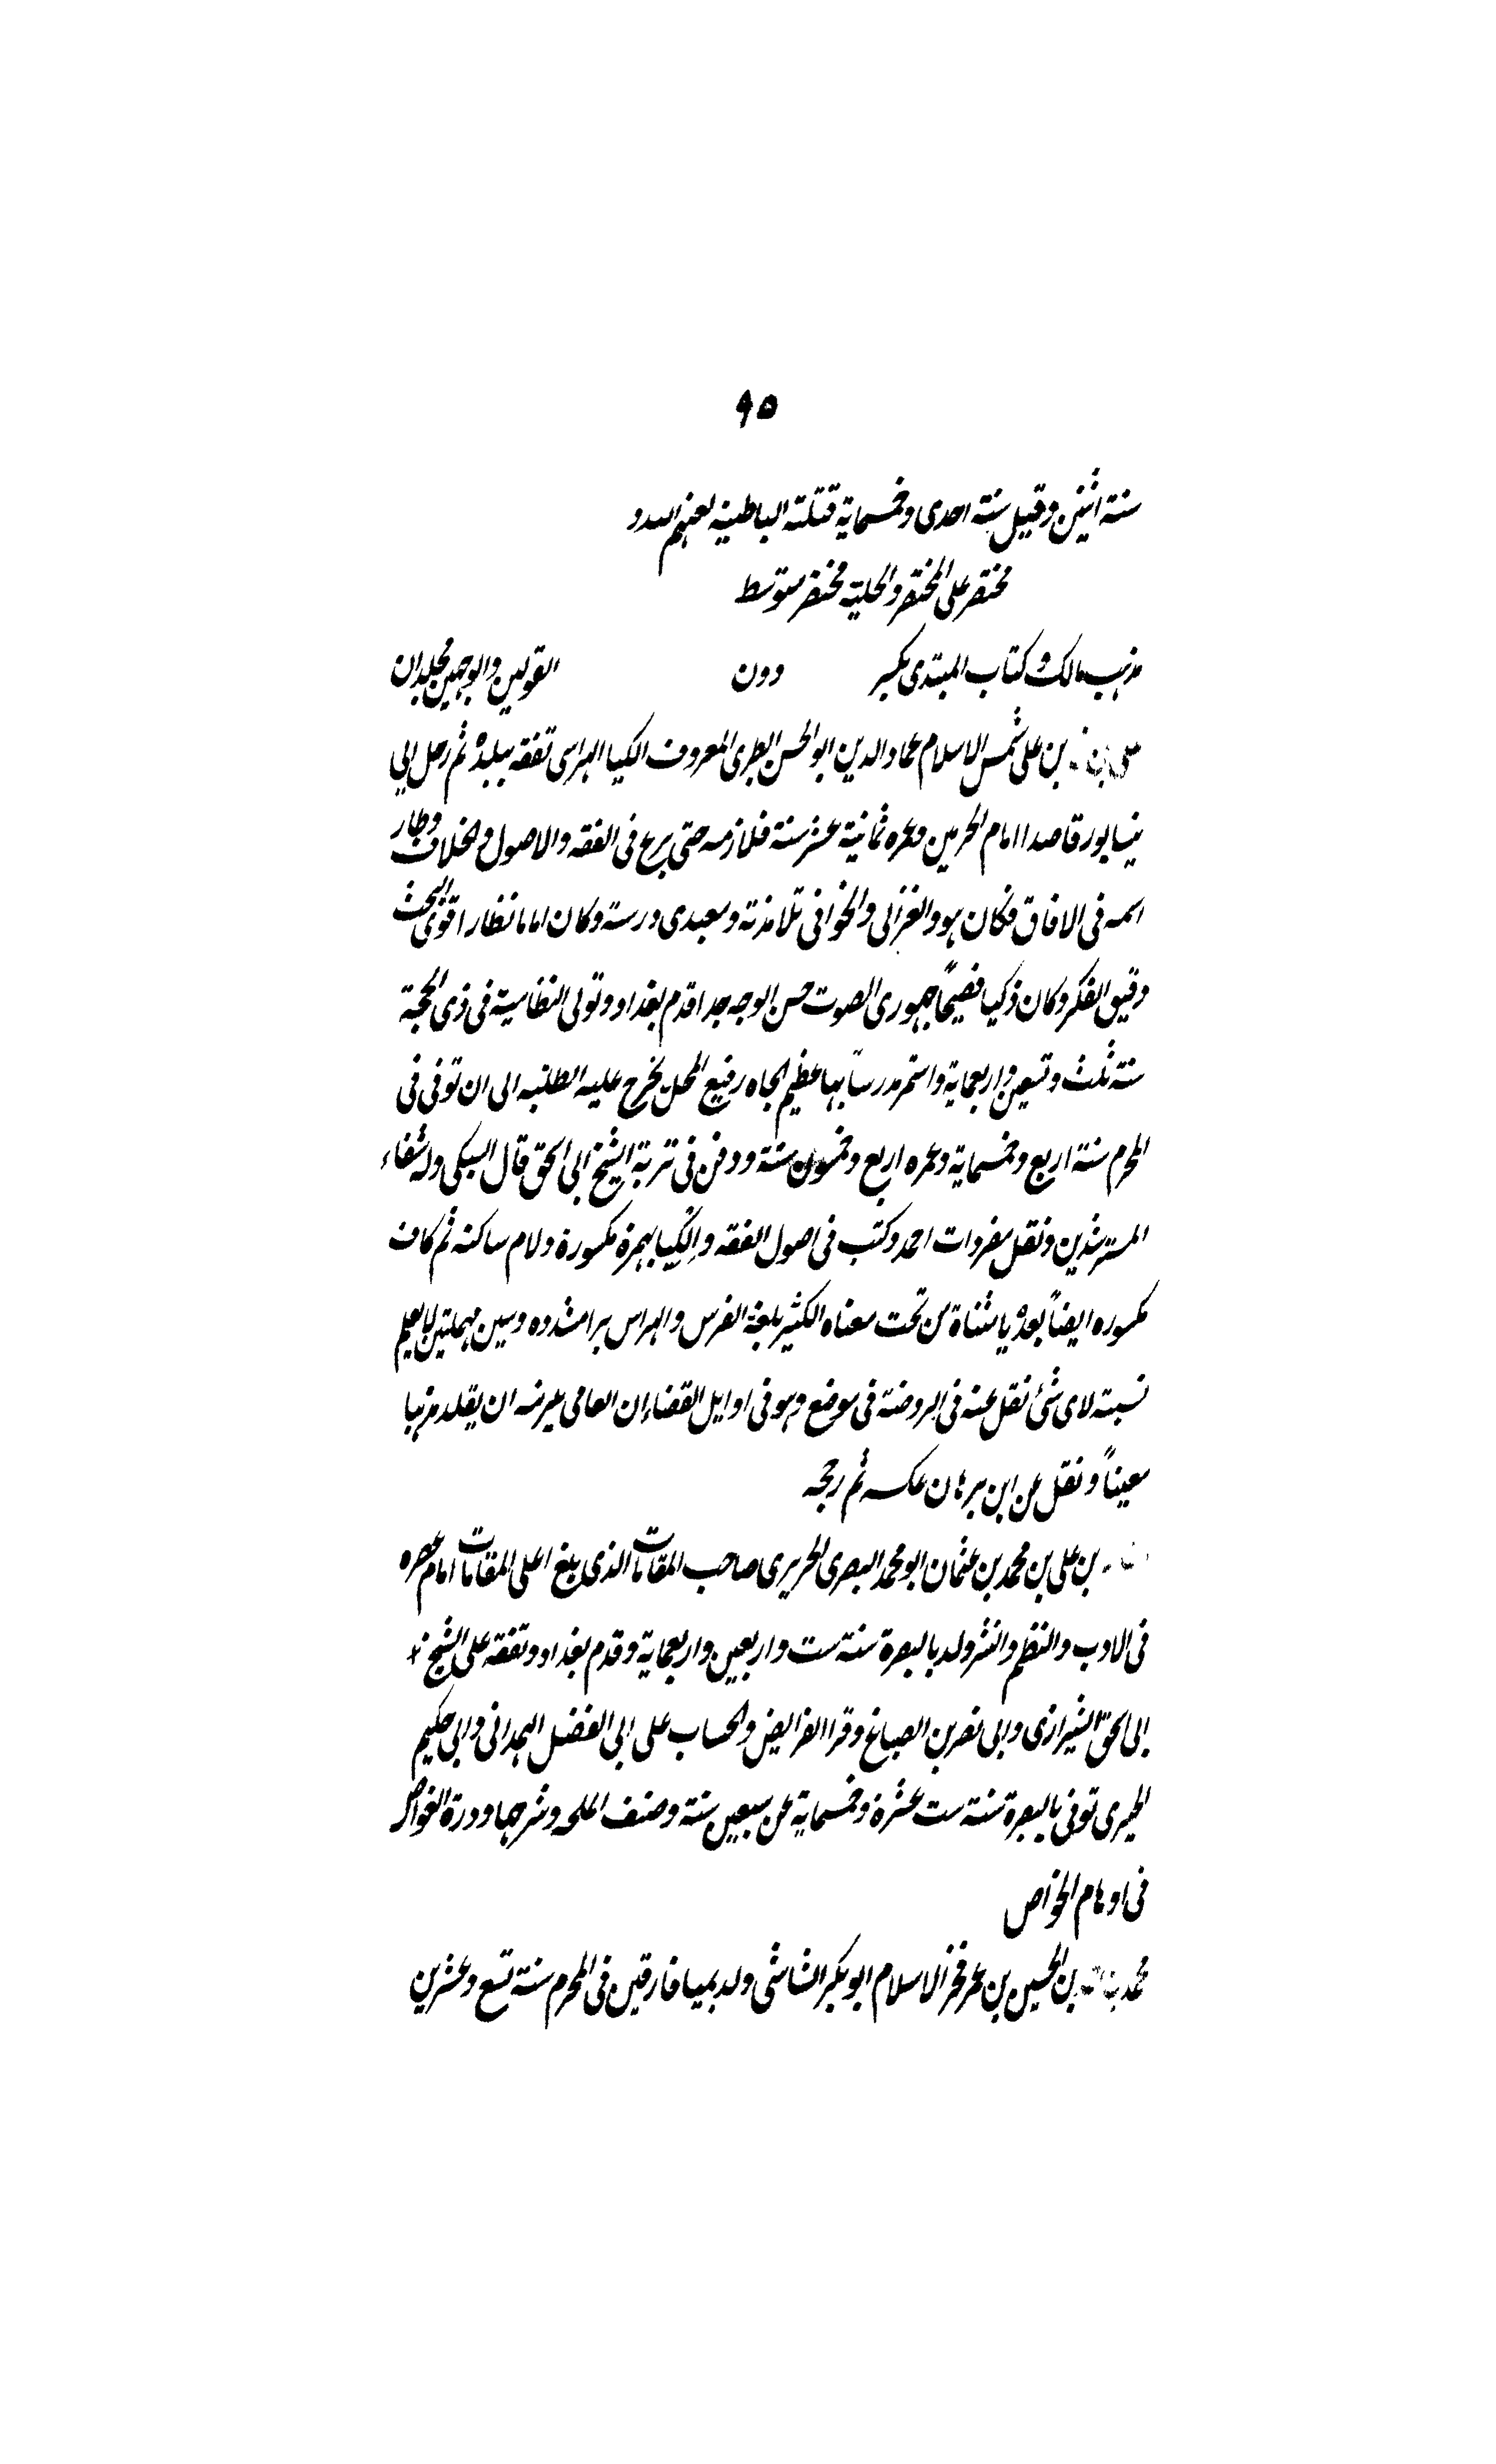 ٩٥
سنة اثنين وقيل سنة احدى وخمسماية قتلته الباطنية لعنهم
مختصر على المختصر والحلية مختصر متوسط
مذهب مالك وكتاب المبتدى بكسر دون القولين والوجهين مجلدان
على بن علی شمس الاسلام عماد الدين ابو الحسن الطبرى المعروف الكيا الهراسى تفقه ببلده ثم رحل الى
نيسابور قاصدا امام الحرمين وعمره ثمانية عشر سنة فلازمه حتى برع فى الفقه والاصول والخلاف وطار
اسمه فى الافاق فكان هو والغزالى والخوافى تلامذته ومعيدى درسه وكان اماما نظارا قوى البحث
دقيق الفكر وكان ذكيا فصيحاً جهورى الصوت حسن الوجه جدا قدم بغداد وتولى النظامية فى ذى الحجة
سنة ثلث وتسعين واربعماية واستمر مدرساً بها عظيم الجاه رفيع المحل يخرج عليه الطلبه الى ان توفى فى
المحرم سنة اربع وخمسماية وعمره اربع وخمسون سنة ودفن فى تربة الشيخ ابى اسحق قال السبكى وله شفاء
المسترشدين ونقل مفردات احمد وكتب فى اصول الفقه والكيا بهمزة مكسورة ولام ساكنه ثم كاف
مكسوره ايضاً بعده يا مثناة من تحت معناه الكثير بلغة الفرس والهراس برا مشدده وسين مهملتين لا يعلم
نسبته لاى شئ نقل عنه فى الروضة فى موضع وهو فى اوايل القضاء ان العامى يلزمه ان يقلد مذهبا
معيناً ونقل عن ابن برهان عكسه ثم رجحه
بن على بن محمد بن عثمان ابو محمد البصرى الحريرى صاحب المقامات الذى بلغ اعلى المقامات امام عصره
فى الادب والنظم والنثر ولد بالبصرة سنة ست واربعين واربعماية وقدم بغداد وتفقه على الشيخ
ابى اسحق الشيرازى وابى نصر بن الصباغ وقرا الفرايض والحساب على ابى الفضل الهمدانى وابى حكيم
الخبرى توفى بالبصرة سنة ست عشرة وخمسماية عن سبعين سنة وصنف الملحه وشرحها ودرة الغواص
فى اوهام الخواص
محمد بن الحسين بن عمر فخر الاسلام ابو بكر الشاشى ولد بميافارقين فى المحرم سنة تسع وعشرين